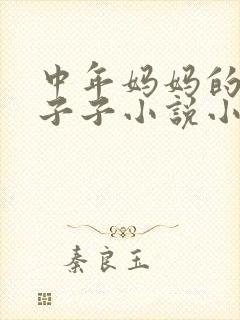 中年妈妈的
子子小说小
秦良玉